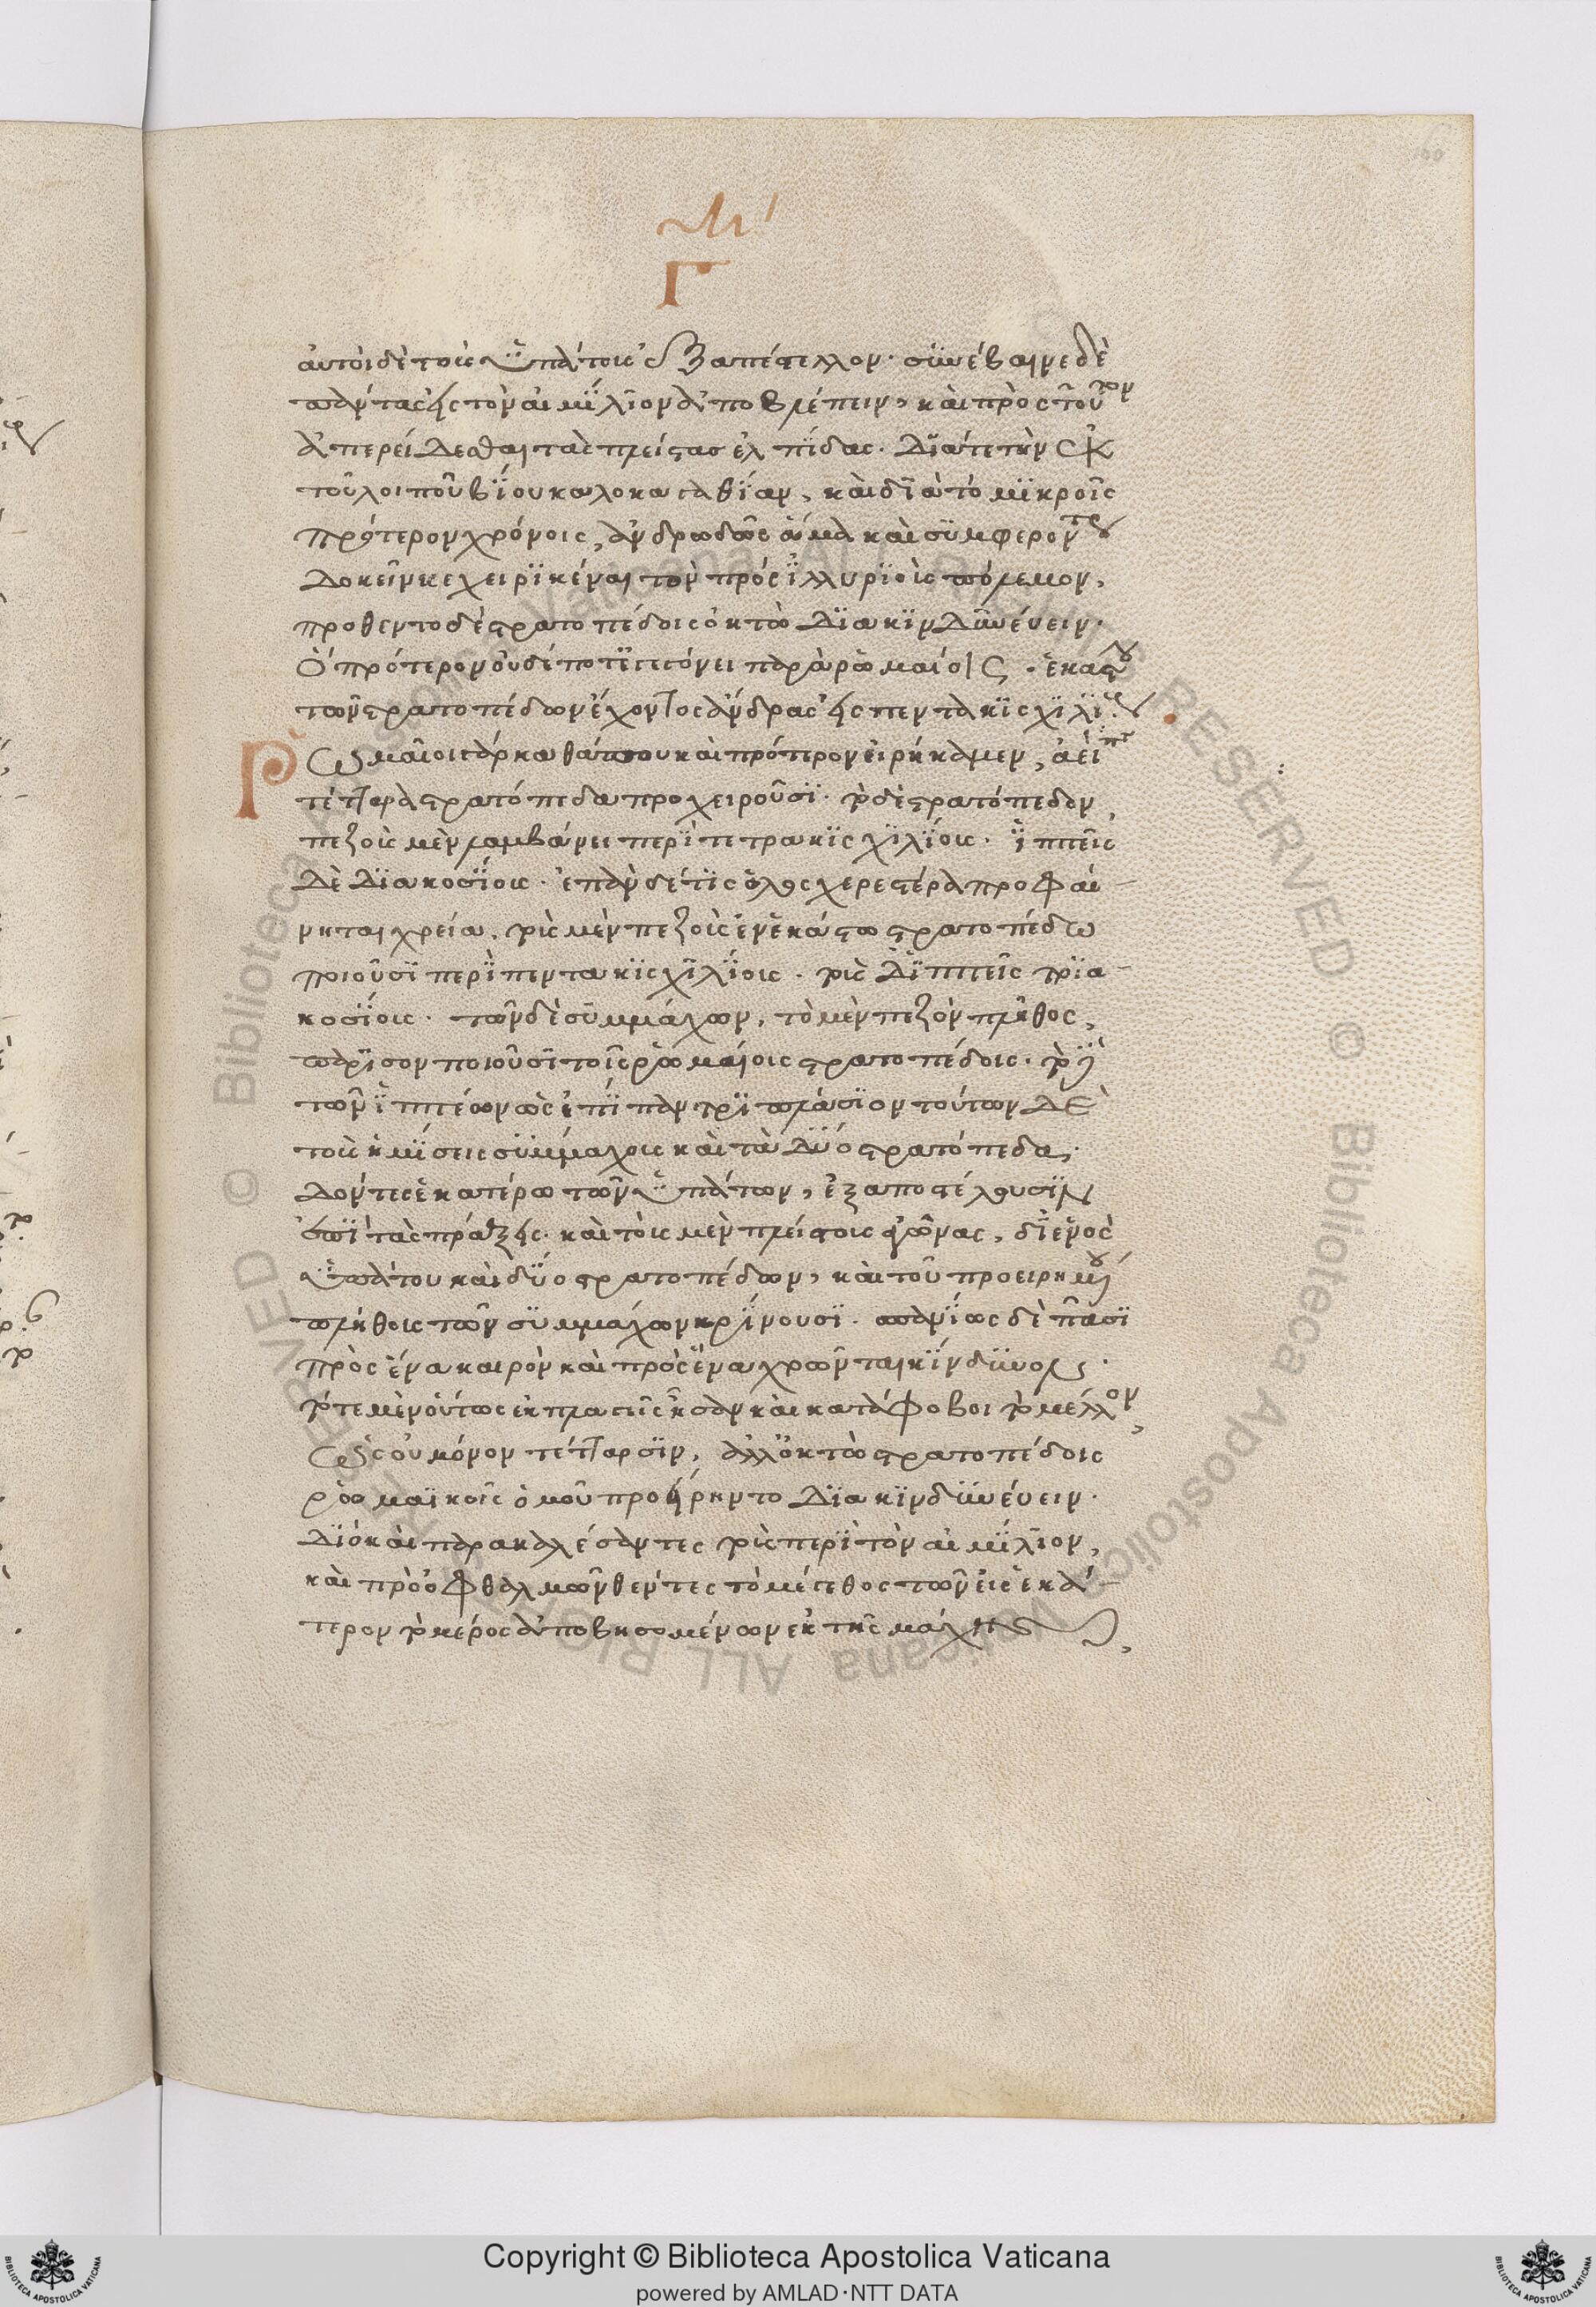 Γ
αὐτοὶ δὲ τοὺς ὑπάτους ἐξαπέστελλον· συνέβαινε δὲ
πάντας εἰς τὸν αἰμίλιον ἀποβλέπειν, καὶ πρὸς τοῦτον
ἀπερείδεσθαι τὰς πλείστας ἐλπίδας· διά τε τὴν ἐκ
τοῦ λοιποῦ βίου καλοκαγαθίαν, καὶ διὰ τὸ μικροῖς
πρότερον χρόνοις, ἀνδρωδῶς ἅμα καὶ συμφερόντως
δοκεῖν κεχειρικέναι τὸν πρὸς ἰλλυριοὺς πόλεμον,
προθεντο δὲ στρατοπέδοις ὀκτὼ διακινδυνεύειν·
ὃ πρότερον οὐδέποτ' ἐγεγόνει παρὰ ῥωμαίοις· ἑκάστου
τῶν στρατοπέδων ἔχοντος ἄνδρας εἰς πεντακισχιλίους·
Ῥωμαῖοι γὰρ καθάπου καὶ πρότερον εἰρήκαμεν, ἀεί ποτε
τέτταρα στρατόπεδα προχειροῦσι· τὸ δὲ στρατόπεδον,
πεζοὺς μὲν λαμβάνει περὶ τετρακισχιλίους· ἱππεῖς
δὲ διακοσίους· ἐπὰν δέ τις ὁλοσχερεστέρα προφαί-
νηται χρεία, τοὺς μὲν πεζοὺς ἐν ἑκάστω στρατοπέδω
ποιοῦσι περὶ πεντακισχιλίους· τοὺς δ' ἱππεῖς τρια-
κοσίους· τῶν δὲ συμμάχων, τὸ μὲν πεζὸν πλῆθος,
πάρισον ποιοῦσι τοῖς ῥωμαίοις στρατοπέδοις· τὸ δὲ
τῶν ἱππέων ὡς ἐπίπαν τριπλάσιον τούτων δὲ
τοὺς ἡμίσεις συμμάχους καὶ τὰ δύο στρατόπεδα,
δόντες ἑκατέρω τῶν ὑπάτων, ἐξαποστέλουσιν
ἐπὶ τὰς πράξεις· καὶ τοὺς μὲν πλείστους ἀγῶνας, δι' ἑνὸς
ὑπάτου καὶ δύο στρατοπέδων, καὶ τοῦ προειρημένου
πλήθους τῶν συμμάχων κρίνουσι· σπανίως δὲ πᾶσι
πρὸς ἕνα καιρὸν καὶ πρὸς ἕνα χρῶνται κίνδυνον·
τότε μὲν οὕτως ἐκπλαγεῖς ἦσαν καὶ κατάφοβοι τὸ μέλλον,
ὡς οὐ μόνον τέτταρσιν, ἀλλ' ὀκτὼ στρατοπέδοις
ῥωμαϊκοῖς ὁμοῦ προήρηντο διακινδυνεύειν·
διὸ καὶ παρακαλέσαντες τοὺς περὶ τὸν αἰμίλιον,
καὶ πρὸ ὀφθαλμῶν θέντες τὸ μέγεθος τῶν εἰς ἑκά-
τερον τὸ μέρος ἀποβησομένων ἐκ τῆς μάχης,